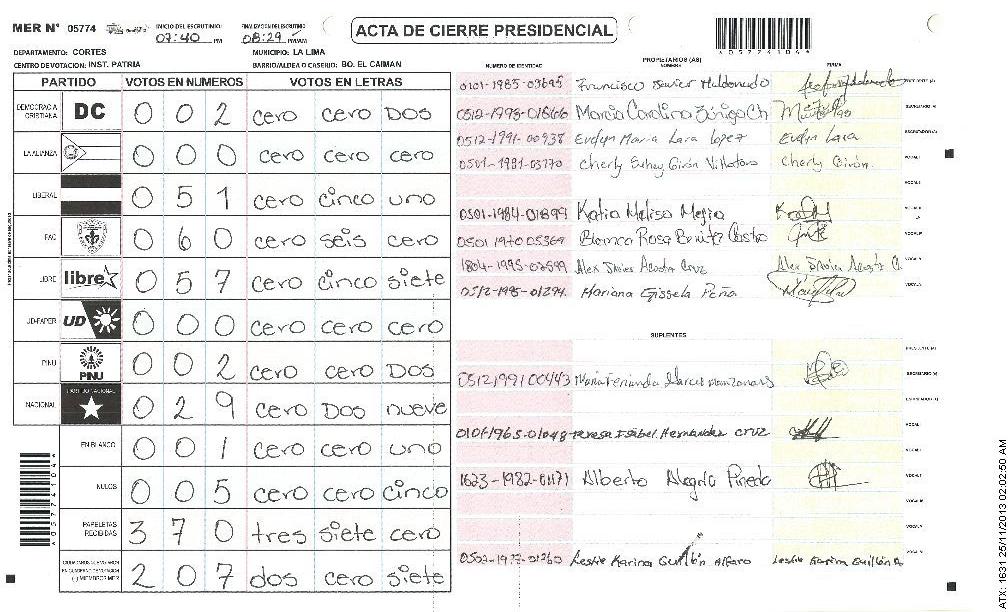 MER N° 05774 INICIO DEL ESCRUTINIO: 07:40 PM FINALIZACION DEL ESCRUTINIO: 08:29 PM/AM
ACTA DE CIERRE PRESIDENCIAL
A057741044
DEPARTAMENTO: CORTES MUNICIPIO: LA LIMA
CENTRO DE VOTACION: INST. PATRIA BARRIO/ALDEA O CASERIO: BO. EL CAIMAN
PARTIDO VOTOS EN NUMEROS VOTOS EN LETRAS
DEMOCRACIA CRISTIANA DC 0 0 2 cero cero DOS
LA ALIANZA 0 0 0 cero cero cero
LIBERAL 0 5 1 cero cinco uno
PAC 0 6 0 cero seis cero
LIBRE libre 0 5 7 cero cinco siete
UD-FAPER UD 0 0 0 cero cero cero
PINU PINU 0 0 2 cero cero DOS
NACIONAL PARTIDO NACIONAL 0 2 9 cero DOS nueve
EN BLANCO 0 0 1 cero cero uno
NULOS 0 0 5 cero cero cinco
PAPELETAS RECIBIDAS 3 7 0 tres siete cero
2 0 7 dos cero siete
A057741044
NUMERO DE IDENTIDAD PROPIETARIOS (AS) NOMBRE FIRMA
0101-1985-03695 Francisco Javier Maldonado
Marcia Carolina Zúñiga Ch
0512-1991-00938 Evelyn Maria Lara lopez Evelyn Lara
0501-1981-03770 Cherly Suhey Girón Villatoro Cherly Girón.
0501-1984-01899 Katia Melisa Mejia
0501 1970 05369 Blanca Rosa Benitez Castro
1804-1995-02599 Alex Javier Acosta Cruz Alex Javier Acosta C.
0512-1995-01294 Mariana Gissela Peña
SUPLENTES
0512199100443
0101-1965-01048 teresa Isabel Hernandez cruz
1623-1982-01171 Alberto Alegría Pineda
0502-1977-01260 Leslie Karina Guillón Alfaro Leslie Karina Guillón A.
ATX: 1631 25/11/2013 02:02:50 AM